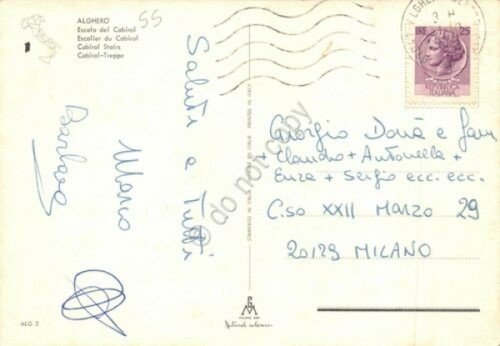 ALGHERO
Escala del Cabirol
Escalier du Cabirol
Cabirol Stairs
Cabirol-Treppe
55
Saluti a Tutti
Mario
Barbara
STAMPATO IN ITALIA
PRINTED IN ITALY
LIRE 25
REPUBBLICA
ITALIANA
Giorgio Donà e fam
+ Claudio + Antonella +
Enza + Sergio ecc. ecc.
C.so XXII MARZO 29
20129 MILANO
ALG 2
do not copy